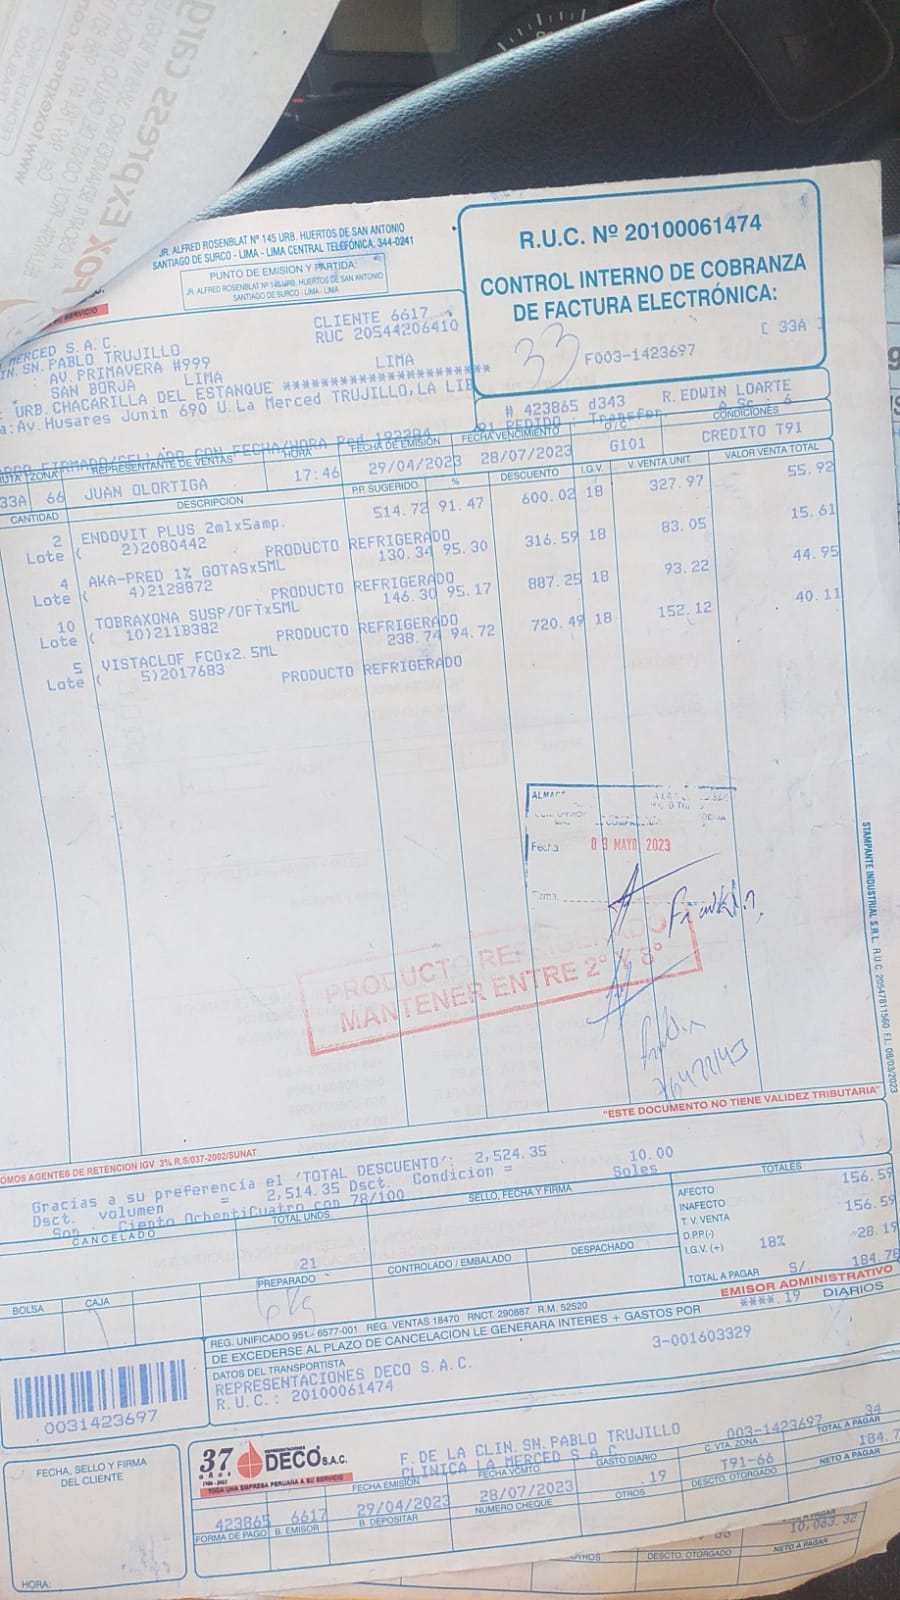 www.foxexpress.co
FOX Express Carg
JR. ALFRED ROSENBLAT Nº 145 URB. HUERTOS DE SAN ANTONIO
SANTIAGO DE SURCO - LIMA - LIMA CENTRAL TELEFÓNICA: 344-0241
PUNTO DE EMISION Y PARTIDA:
JR. ALFRED ROSENBLAT Nº 145 URB. HUERTOS DE SAN ANTONIO
SANTIAGO DE SURCO - LIMA - LIMA
R.U.C. Nº 20100061474
CONTROL INTERNO DE COBRANZA
DE FACTURA ELECTRÓNICA:
33
F003-1423697
[ 33A ]
CLIENTE 6617
RUC 20544206410
MERCED S.A.C.
IN. SN. PABLO TRUJILLO
: AV. PRIMAVERA #999 LIMA
SAN BORJA LIMA
: URB. CHACARILLA DEL ESTANQUE **********************
a:Av. Husares Junin 690 U.La Merced TRUJILLO,LA LIB
# 423865 d343 R.EDWIN LOARTE
PEDIDO - Transfer
FIRMADO/SELLADO CON FECHA/HORA Ped
RUTA ZONA REPRESENTANTE DE VENTAS HORA FECHA DE EMISIÓN FECHA VENCIMIENTO O/C CONDICIONES
33A 66 JUAN OLORTIGA 17:46 29/04/2023 28/07/2023 G101 CREDITO T91
CANTIDAD DESCRIPCION P.P. SUGERIDO % DESCUENTO I.G.V. V. VENTA UNIT. VALOR VENTA TOTAL
2 ENDOVIT PLUS 2mlx5amp. 514.72 91.47 600.02 18 327.97 55.92
Lote ( 2)2080442 PRODUCTO REFRIGERADO
4 AKA-PRED 1% GOTASx5ML 130.34 95.30 316.59 18 83.05 15.61
Lote ( 4)2128872 PRODUCTO REFRIGERADO
10 TOBRAXONA SUSP/OFTx5ML 146.30 95.17 887.25 18 93.22 44.95
Lote ( 10)211B382 PRODUCTO REFRIGERADO
5 VISTACLOF FCOx2.5ML 238.74 94.72 720.49 18 152.12 40.11
Lote ( 5)2017683 PRODUCTO REFRIGERADO
Fecha 03 MAYO 2023
Franklin
PRODUCTO REFRIGERADO
MANTENER ENTRE 2° Y 8°
STAMPANTE INDUSTRIAL S.R.L. R.U.C. 20547811560 F.I. 08/03/2023
"ESTE DOCUMENTO NO TIENE VALIDEZ TRIBUTARIA"
OMOS AGENTES DE RETENCION IGV 3% R.S/037-2002/SUNAT
Gracias a su preferencia el 'TOTAL DESCUENTO': 2,524.35
Dsct. volumen = 2,514.35 Dsct. Condicion = 10.00
Son : Ciento OchentiCuatro con 78/100 Soles
CANCELADO TOTAL UNDS. SELLO, FECHA Y FIRMA TOTALES
21
AFECTO 156.59
INAFECTO
T.V. VENTA 156.59
D.P.P.(-)
I.G.V. (+) 18% 28.19
TOTAL A PAGAR S/. 184.78
BOLSA CAJA PREPARADO CONTROLADO / EMBALADO DESPACHADO
EMISOR ADMINISTRATIVO
REG. UNIFICADO 951.- 6577-001 REG. VENTAS 18470 RNCT. 290887 R.M. 52520
DE EXCEDERSE AL PLAZO DE CANCELACION LE GENERARA INTERES + GASTOS POR ****.19 DIARIOS
DATOS DEL TRANSPORTISTA 3-001603329
REPRESENTACIONES DECO S.A.C.
R.U.C.: 20100061474
0031423697
FECHA, SELLO Y FIRMA
DEL CLIENTE
HORA:
37 AÑOS
REPRESENTACIONES
DECO S.A.C.
TODA UNA EMPRESA PERUANA A SU SERVICIO
F. DE LA CLIN. SN. PABLO TRUJILLO
CLINICA LA MERCED S.A.C
003-1423697 34
FECHA EMISIÓN FECHA VCMTO GASTO DIARIO C. VTA. ZONA TOTAL A PAGAR
423865 6617 29/04/2023 28/07/2023 .19 T91-66 184.7
FORMA DE PAGO B. EMISOR B. DEPOSITAR NUMERO CHEQUE OTROS DESCTO. OTORGADO NETO A PAGAR
10,063.32
OTROS DESCTO. OTORGADO NETO A PAGAR